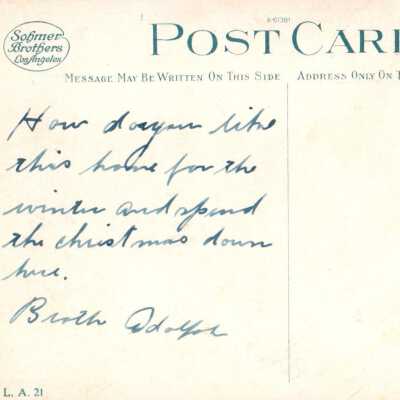 Sohmer
Brothers
Los Angeles
A-61381
POST CAR
MESSAGE MAY BE WRITTEN ON THIS SIDE
ADDRESS ONLY ON T
How do you like
this home for the
winter and spend
the christmas down
here.
Broth Adolph
L. A. 21